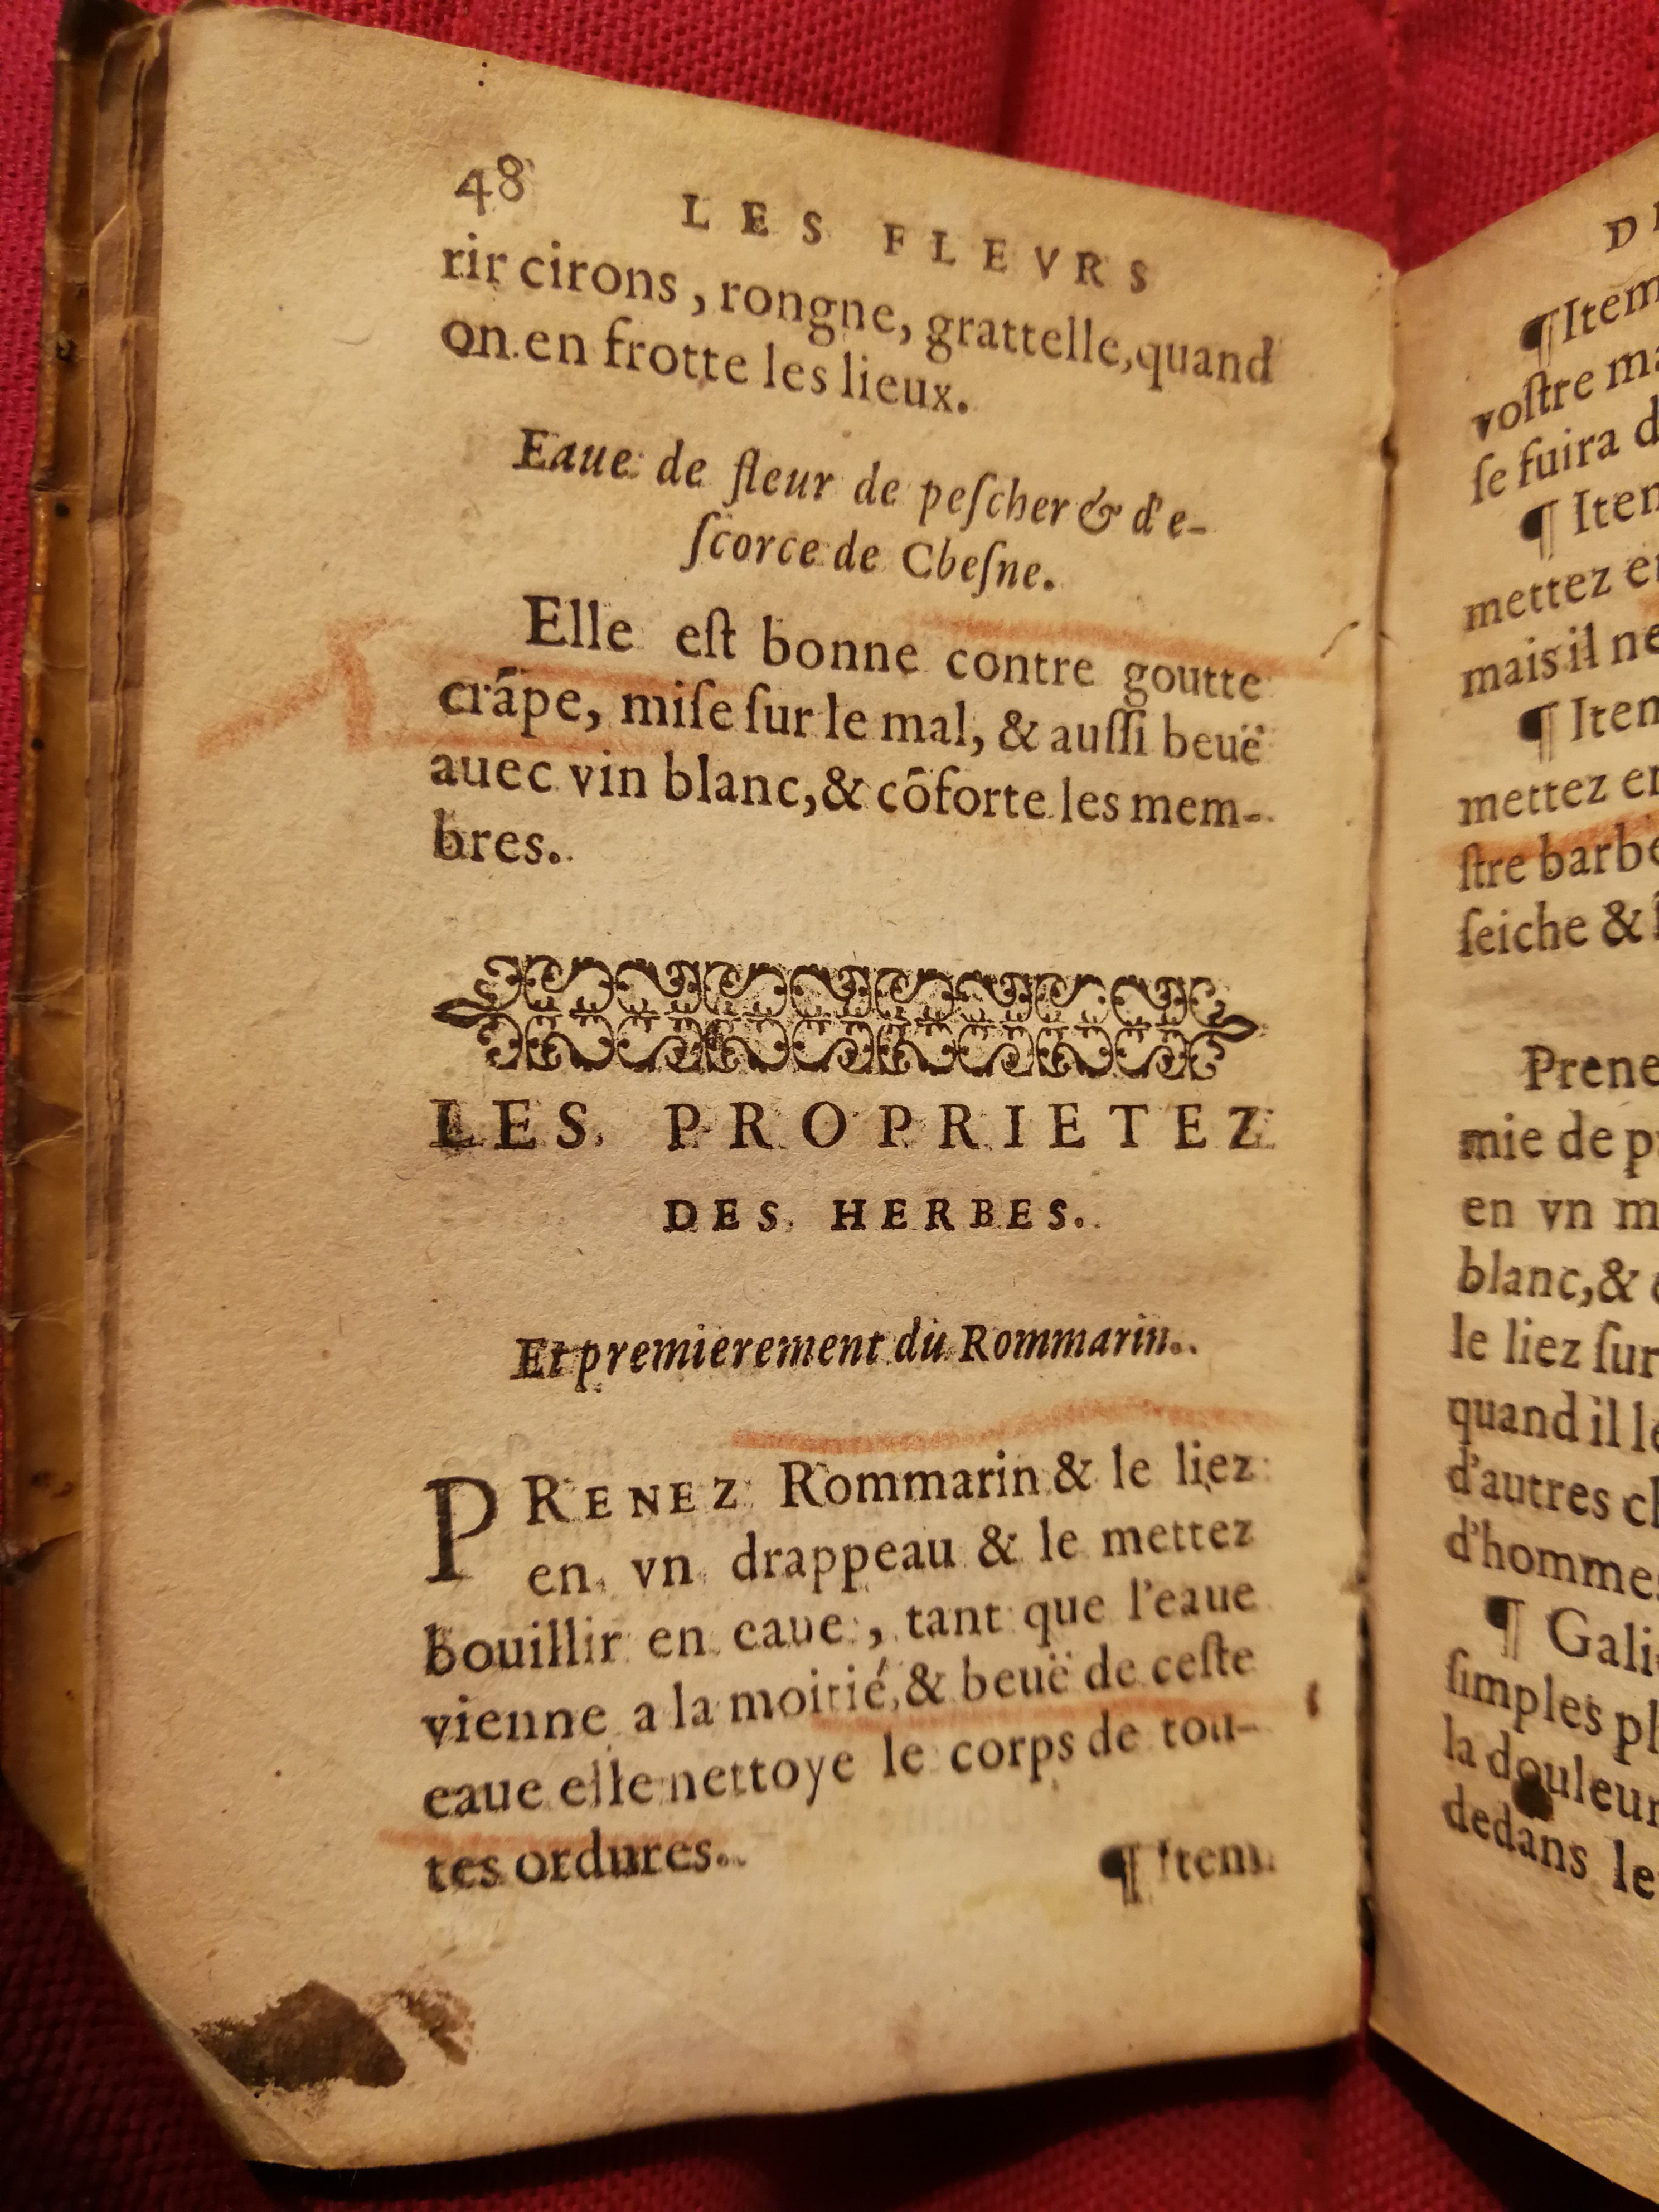 48
LES FLEVRS
rir cirons, rongne, grattelle, quand
on en frotte les lieux.
Eaue de fleur de peſcher & d'e-
ſcorce de Cheſne.
Elle eſt bonne contre goutte
crãpe, miſe ſur le mal, & auſſi beuë
auec vin blanc, & cõforte les mem-
bres.
LES PROPRIETEZ
DES HERBES.
Et premierement du Rommarin.
PRENEZ Rommarin & le liez
en vn drappeau & le mettez
bouillir en eaue, tant que l'eaue
vienne a la moitié, & beuë de ceſte
eaue elle nettoye le corps de tou-
tes ordures.
¶ Item
¶ Item
voſtre
ſe fuira
¶
mettez
mais il ne
¶
mettez
ſtre barbe
ſeiche &
mie de
en vn
blanc, &
le liez ſur
quand il
d'autres
d'hommes
¶
ſimples
la douleur
dedans